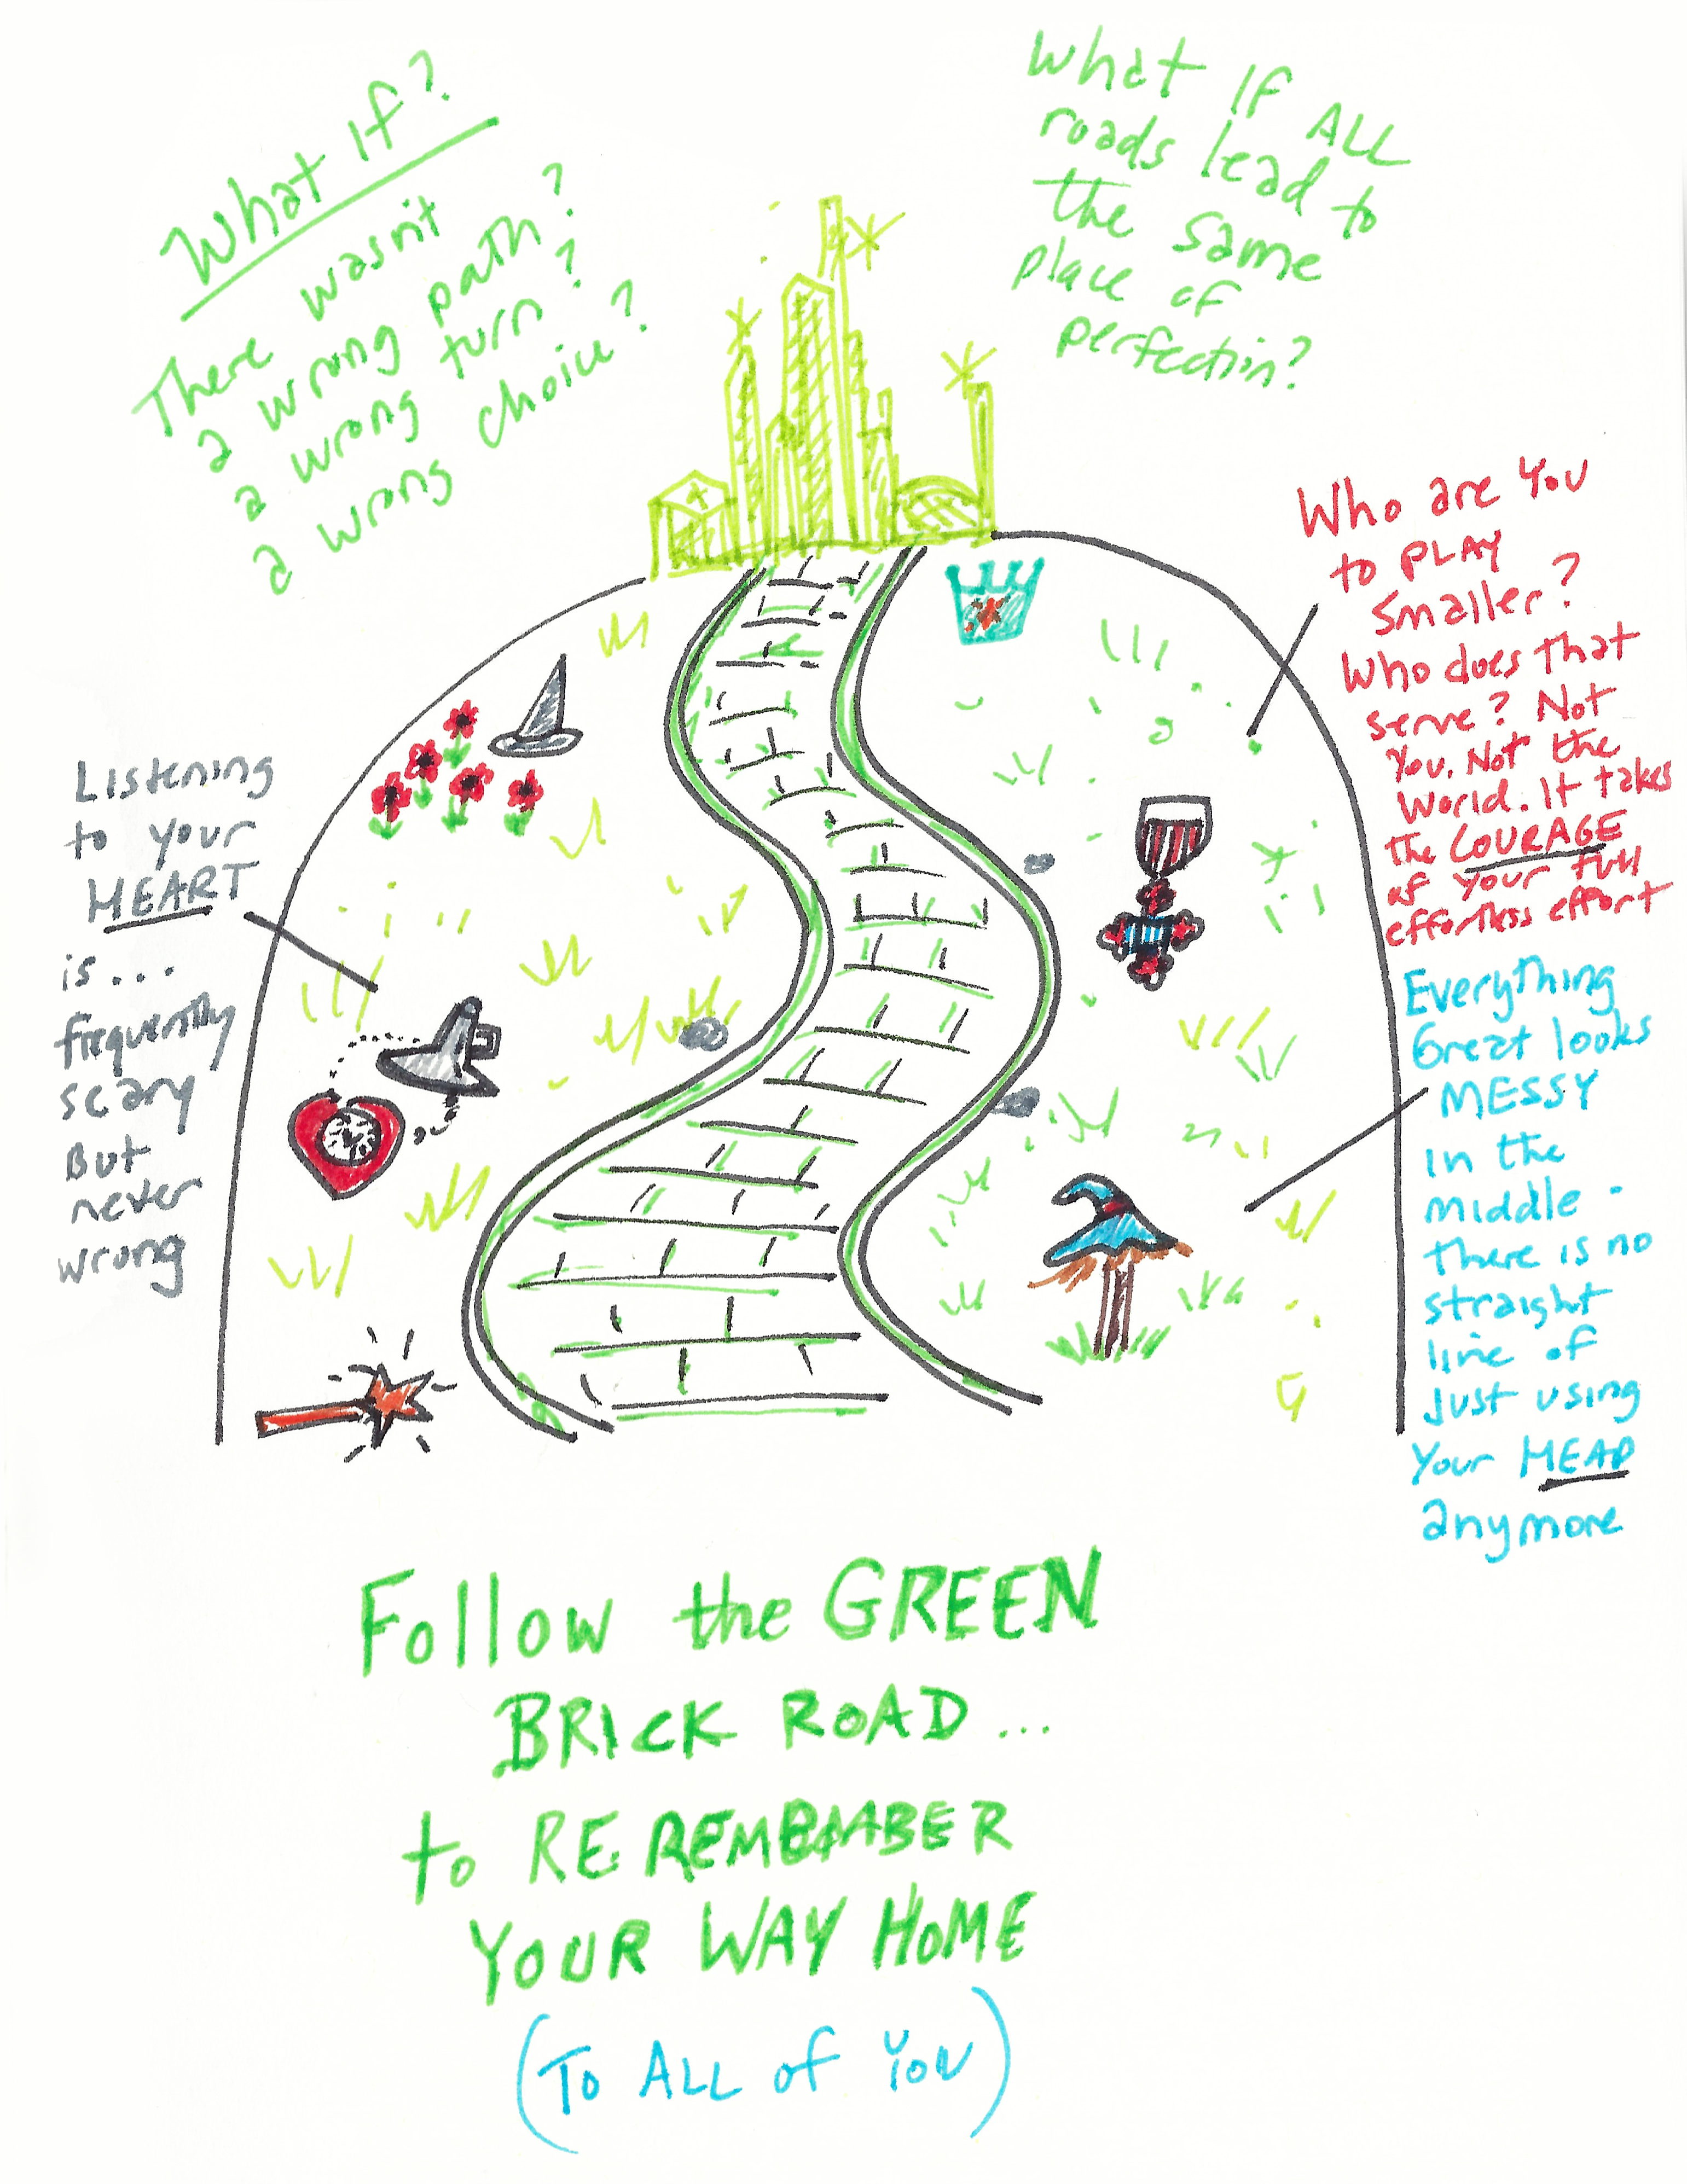 What If?
There wasn't
a wrong path?
a wrong turn?
a wrong choice?
What If ALL
roads lead to
the same
place of
perfection?
Who are You
to PLAY
smaller?
Who does that
serve? Not
You. Not the
World. It takes
the COURAGE
of your full
effortless effort
Listening
to your
HEART
is...
frequently
scary
But
never
wrong
Everything
Great looks
MESSY
in the
middle -
there is no
straight
line of
Just using
Your HEAD
anymore
Follow the GREEN
BRICK ROAD...
to RE REMEMBER
YOUR WAY HOME
(To ALL of YOU)